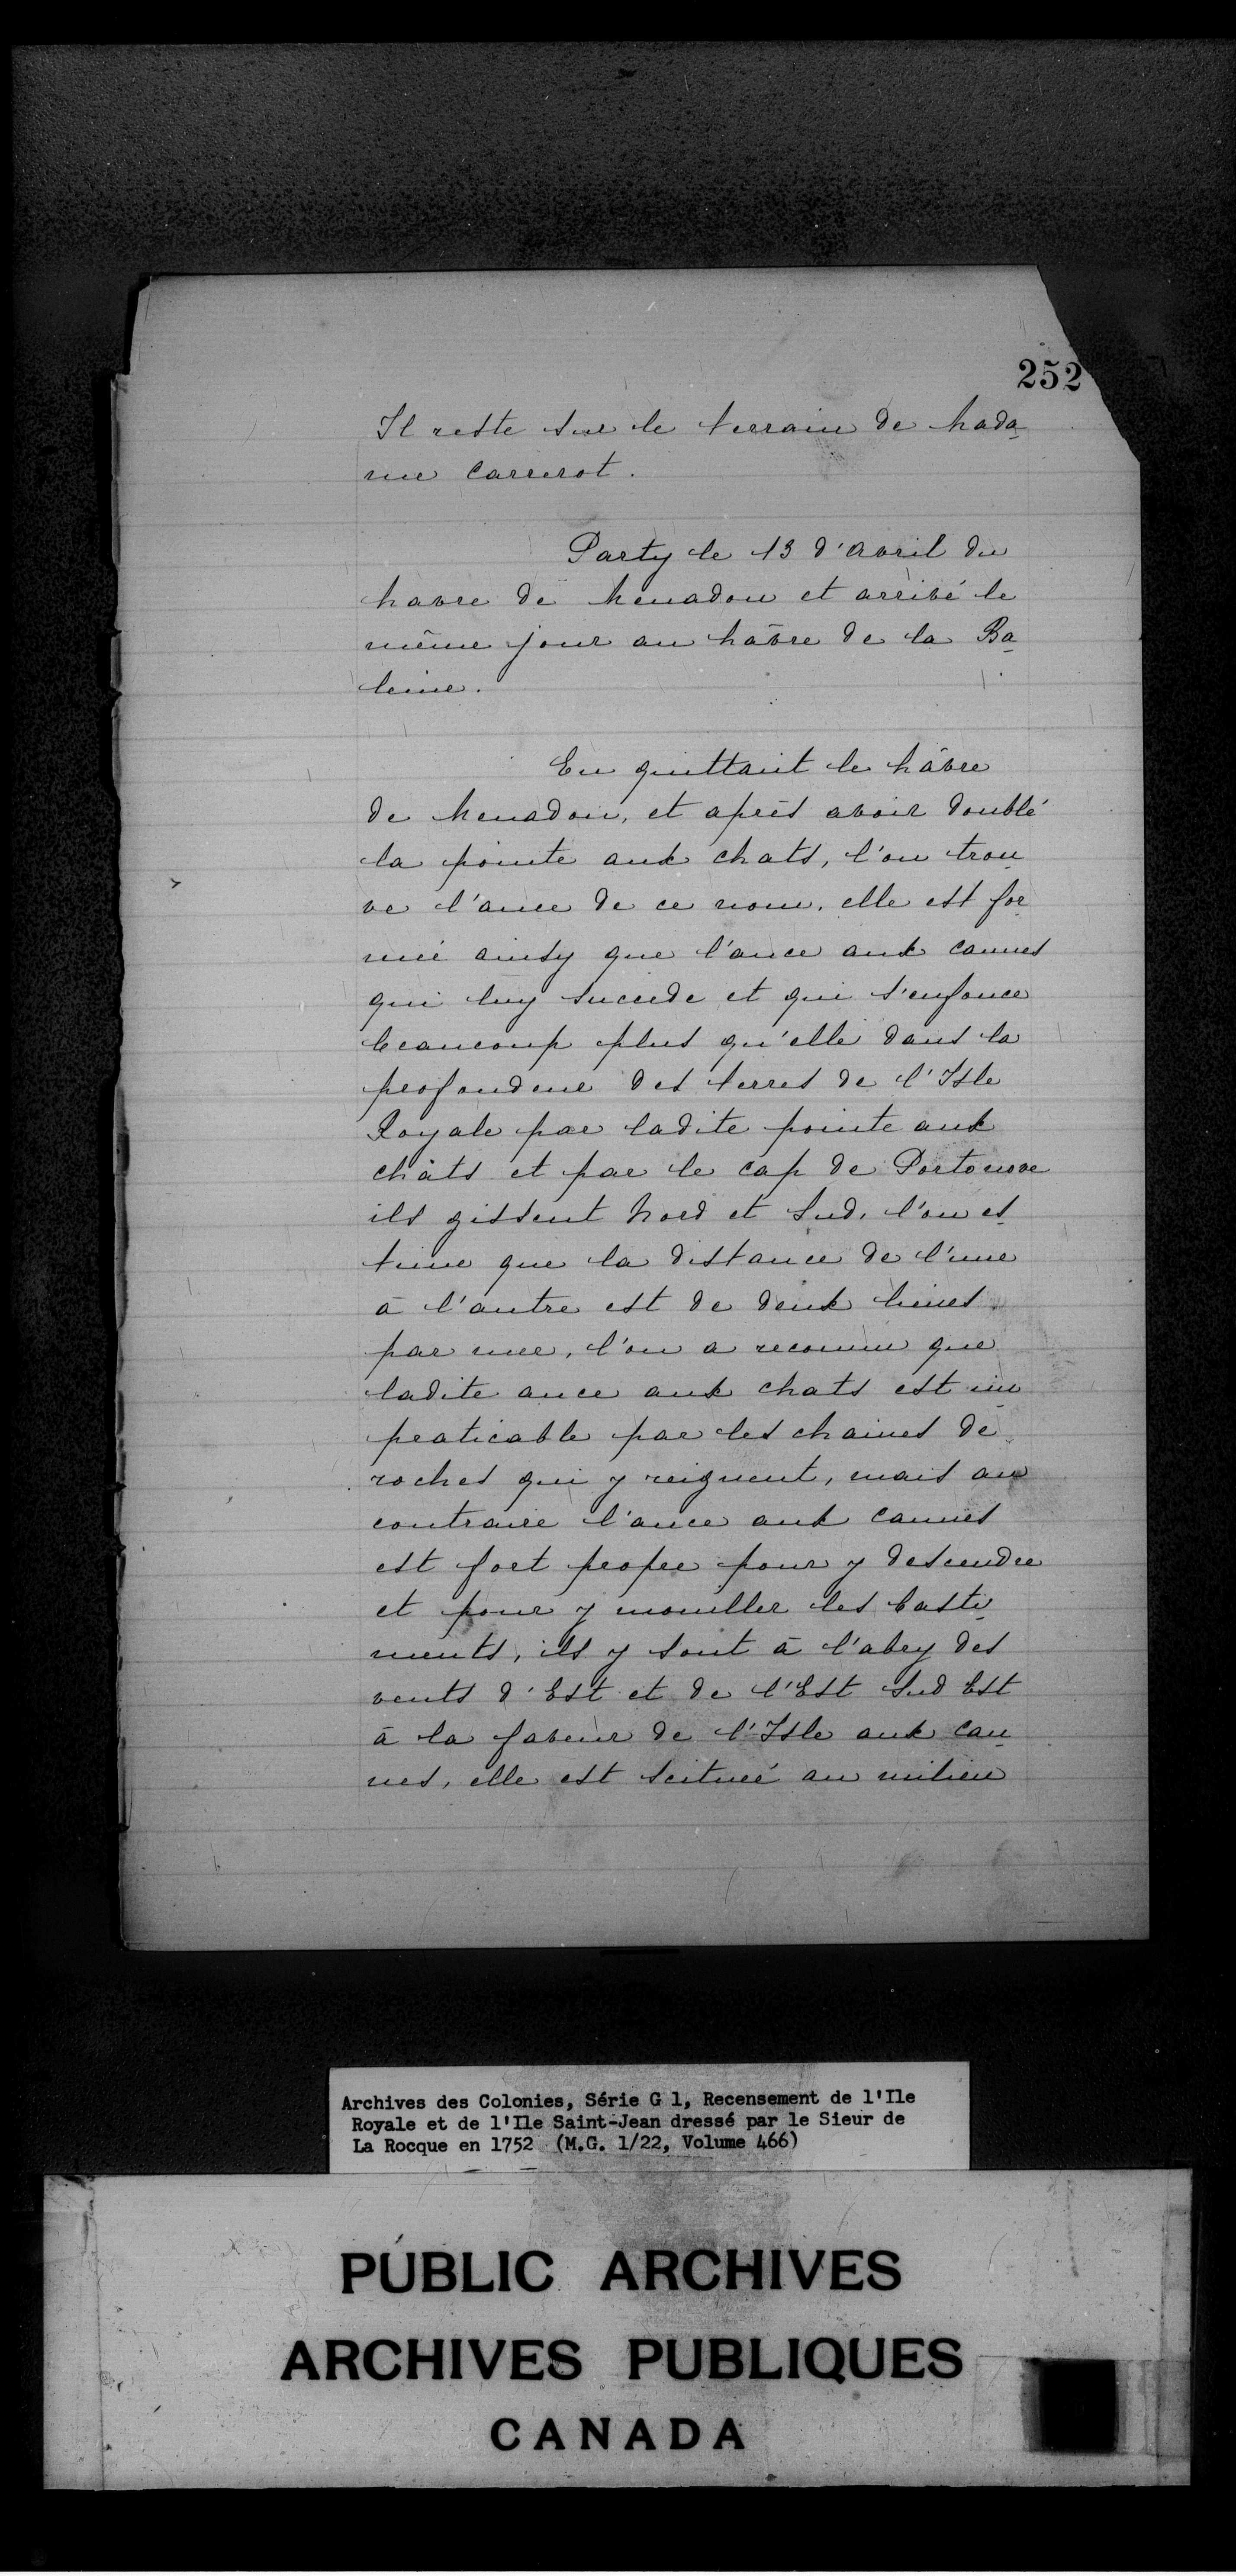 252
Il reste sur le terrain de Mada
me Carrerot.
Party le 13 d'avril du
havre de Menadou et arrivé le
même jour au hâvre de la Ba
leine.
En quittant le hâvre
de Menadou, et après avoir doublé
la pointe aux chats, l'on trou
ve l'ance de ce nom. elle est for
mée ainsy que l'ance aux Cannes
qui luy succede et qui s'enfonce
beaucoup plus qu'elle dans la
profondeur des terres de l'Isle
Royale par ladite pointe aux
chats et par le cap de Portenove
ils gissent Nord et Sud, l'on es
time que la distance de l'une
à l'autre est de deux lieues
par mer, l'on a reconnu que
ladite ance aux chats est im
praticable par les chaines de
roches qui y reignent, mais au
contraire l'ance aux Cannes
est fort propre pour y descendre
et pour y mouiller les basti
ments, ils y sont à l'abry des
vents d'Est et de l'Est Sud Est
à la faveur de l'Isle aux Can
nes, elle est scituée au milieu
Archives des Colonies, Série G 1, Recensement de l'Ile
Royale et de l'Ile Saint-Jean dressé par le Sieur de
La Rocque en 1752 (M.G. 1/22, Volume 466)
PUBLIC ARCHIVES
ARCHIVES PUBLIQUES
CANADA